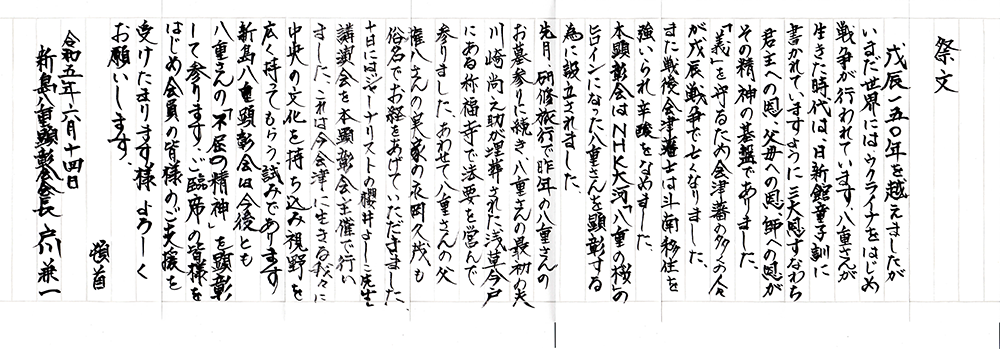 祭文
戊辰一五〇年を越えましたが
いまだ世界にはウクライナをはじめ
戦争が行われています。八重さんが
生きた時代は、日新館童子訓に
書かれていますように三大恩すなわち
君主への恩、父母への恩、師への恩が
その精神の基盤でありました。
「義」を守るため会津藩の多くの人々
が戊辰戦争で亡くなりました。
また戦後会津藩士は斗南移住を
強いられ辛酸をなめました。
本顕彰会はNHK大河「八重の桜」の
ヒロインになった八重さんを顕彰する
為に設立されました。
先月、研修旅行で昨年の八重さんの
お墓参りに続き、八重さんの最初の夫
川崎尚之助が埋葬された浅草今戸
にある称福寺で法要を営んで
参りました。あわせて八重さんの父
権八さんの実家の永岡久茂も
俗名でお経をあげていただきました。
十日にはジャーナリストの櫻井よしこ先生
講演会を本顕彰会主催で行い
ました。これは今会津に生きる我々に
中央の文化を持ち込み視野を
広く持ってもらう試みであります
新島八重顕彰会は今後とも
八重さんの「不屈の精神」を顕彰
して参ります。ご臨席の皆様を
はじめ会員の皆様のご支援を
受けたまりますす様よろしく
お願いします。
頓首
令和五年六月十四日
新島八重顕彰会会長 兼一